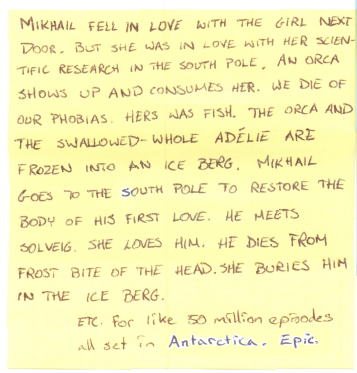 MIKHAIL FELL IN LOVE WITH THE GIRL NEXT
DOOR. BUT SHE WAS IN LOVE WITH HER SCIEN-
TIFIC RESEARCH IN THE SOUTH POLE. AN ORCA
SHOWS UP AND CONSUMES HER. WE DIE OF
OUR PHOBIAS. HERS WAS FISH. THE ORCA AND
THE SWALLOWED-WHOLE ADÉLIE ARE
FROZEN INTO AN ICE BERG. MIKHAIL
GOES TO THE SOUTH POLE TO RESTORE THE
BODY OF HIS FIRST LOVE. HE MEETS
SOLVEIG. SHE LOVES HIM. HE DIES FROM
FROST BITE OF THE HEAD. SHE BURIES HIM
IN THE ICE BERG.
ETC. For like 50 million episodes
all set in Antarctica. Epic.